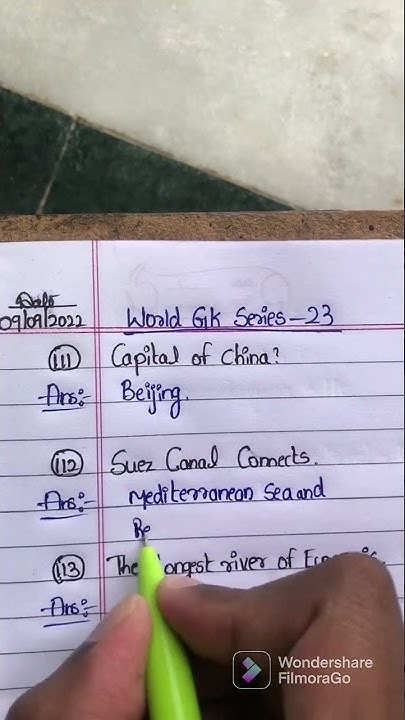 Date
09/09/2022
World GK Series-23
111 Capital of China?
Ans:- Beijing.
112 Suez Canal Connects.
Ans:- Mediterranean Sea and
Re
113 The longest river of Europe is.
Ans:-
Wondershare
FilmoraGo